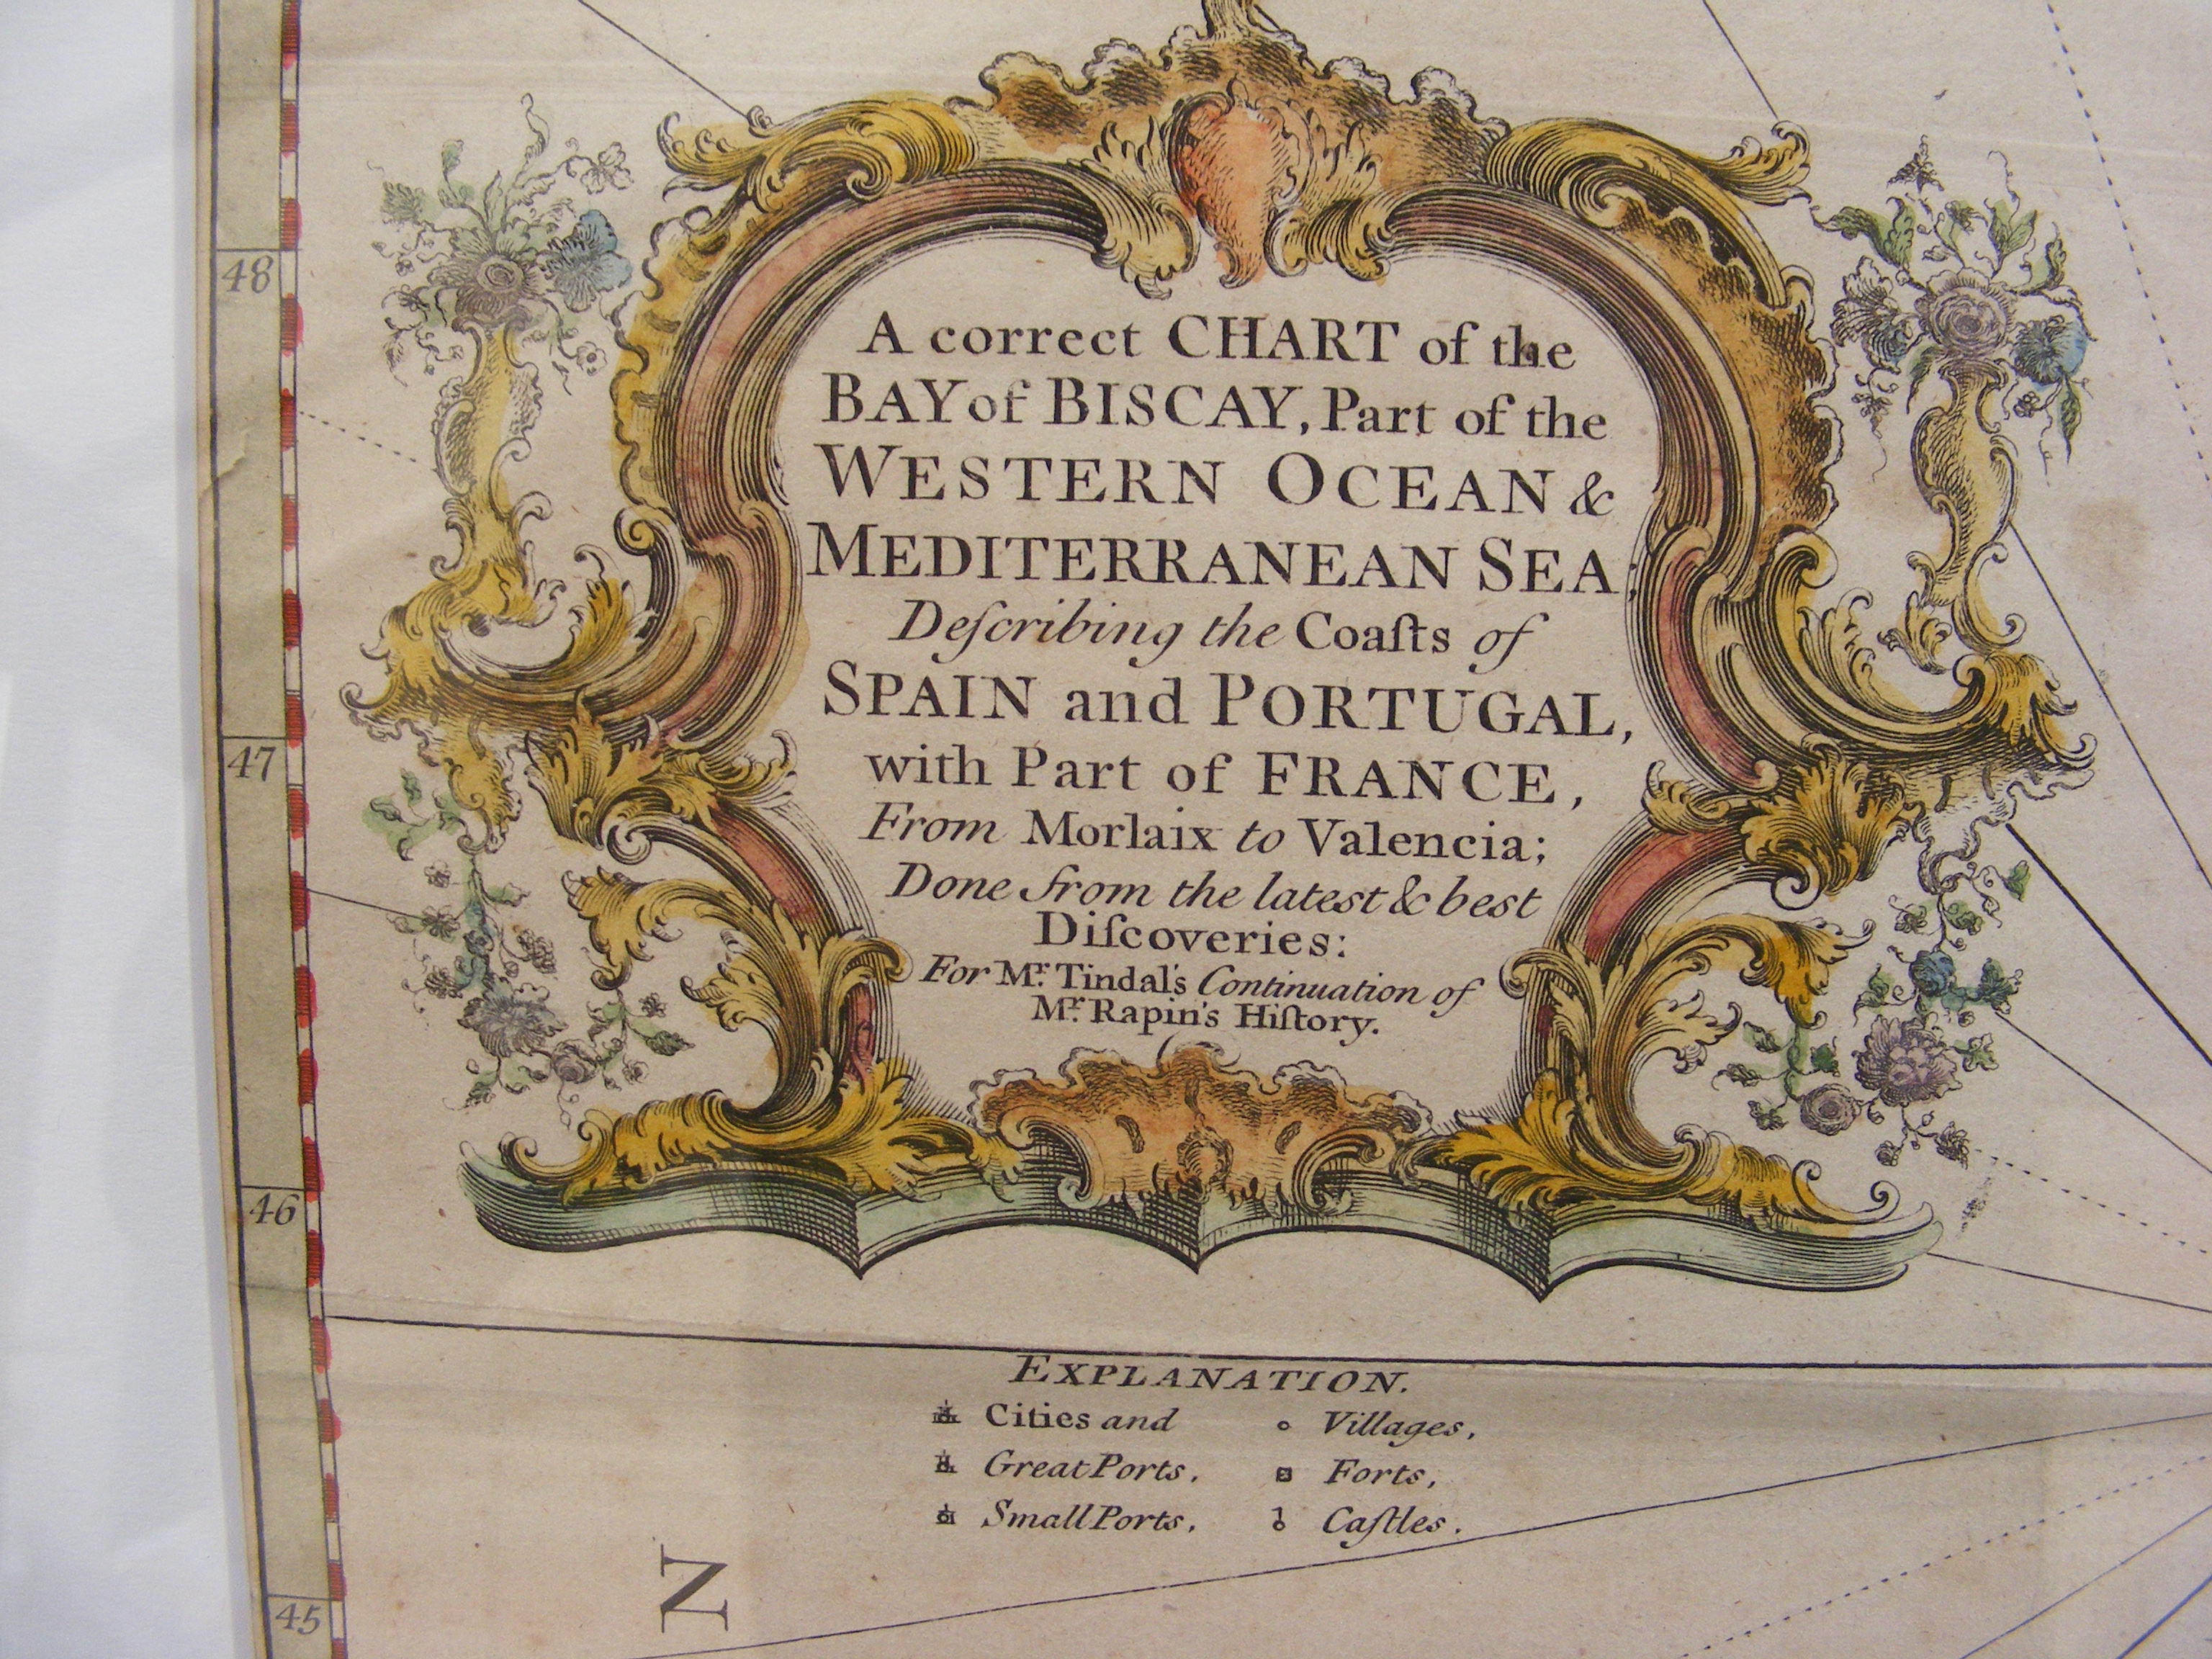 A correct CHART of the
BAY of BISCAY, Part of the
WESTERN OCEAN &
MEDITERRANEAN SEA;
Deſcribing the Coaſts of
SPAIN and PORTUGAL,
with Part of FRANCE,
From Morlaix to Valencia;
Done from the latest & best
Diſcoveries:
For Mr. Tindal's Continuation of
Mr. Rapin's Hiſtory.
48
47
46
45
EXPLANATION.
Cities and
Great Ports.
Small Ports.
Villages,
Forts,
Caſtles.
N